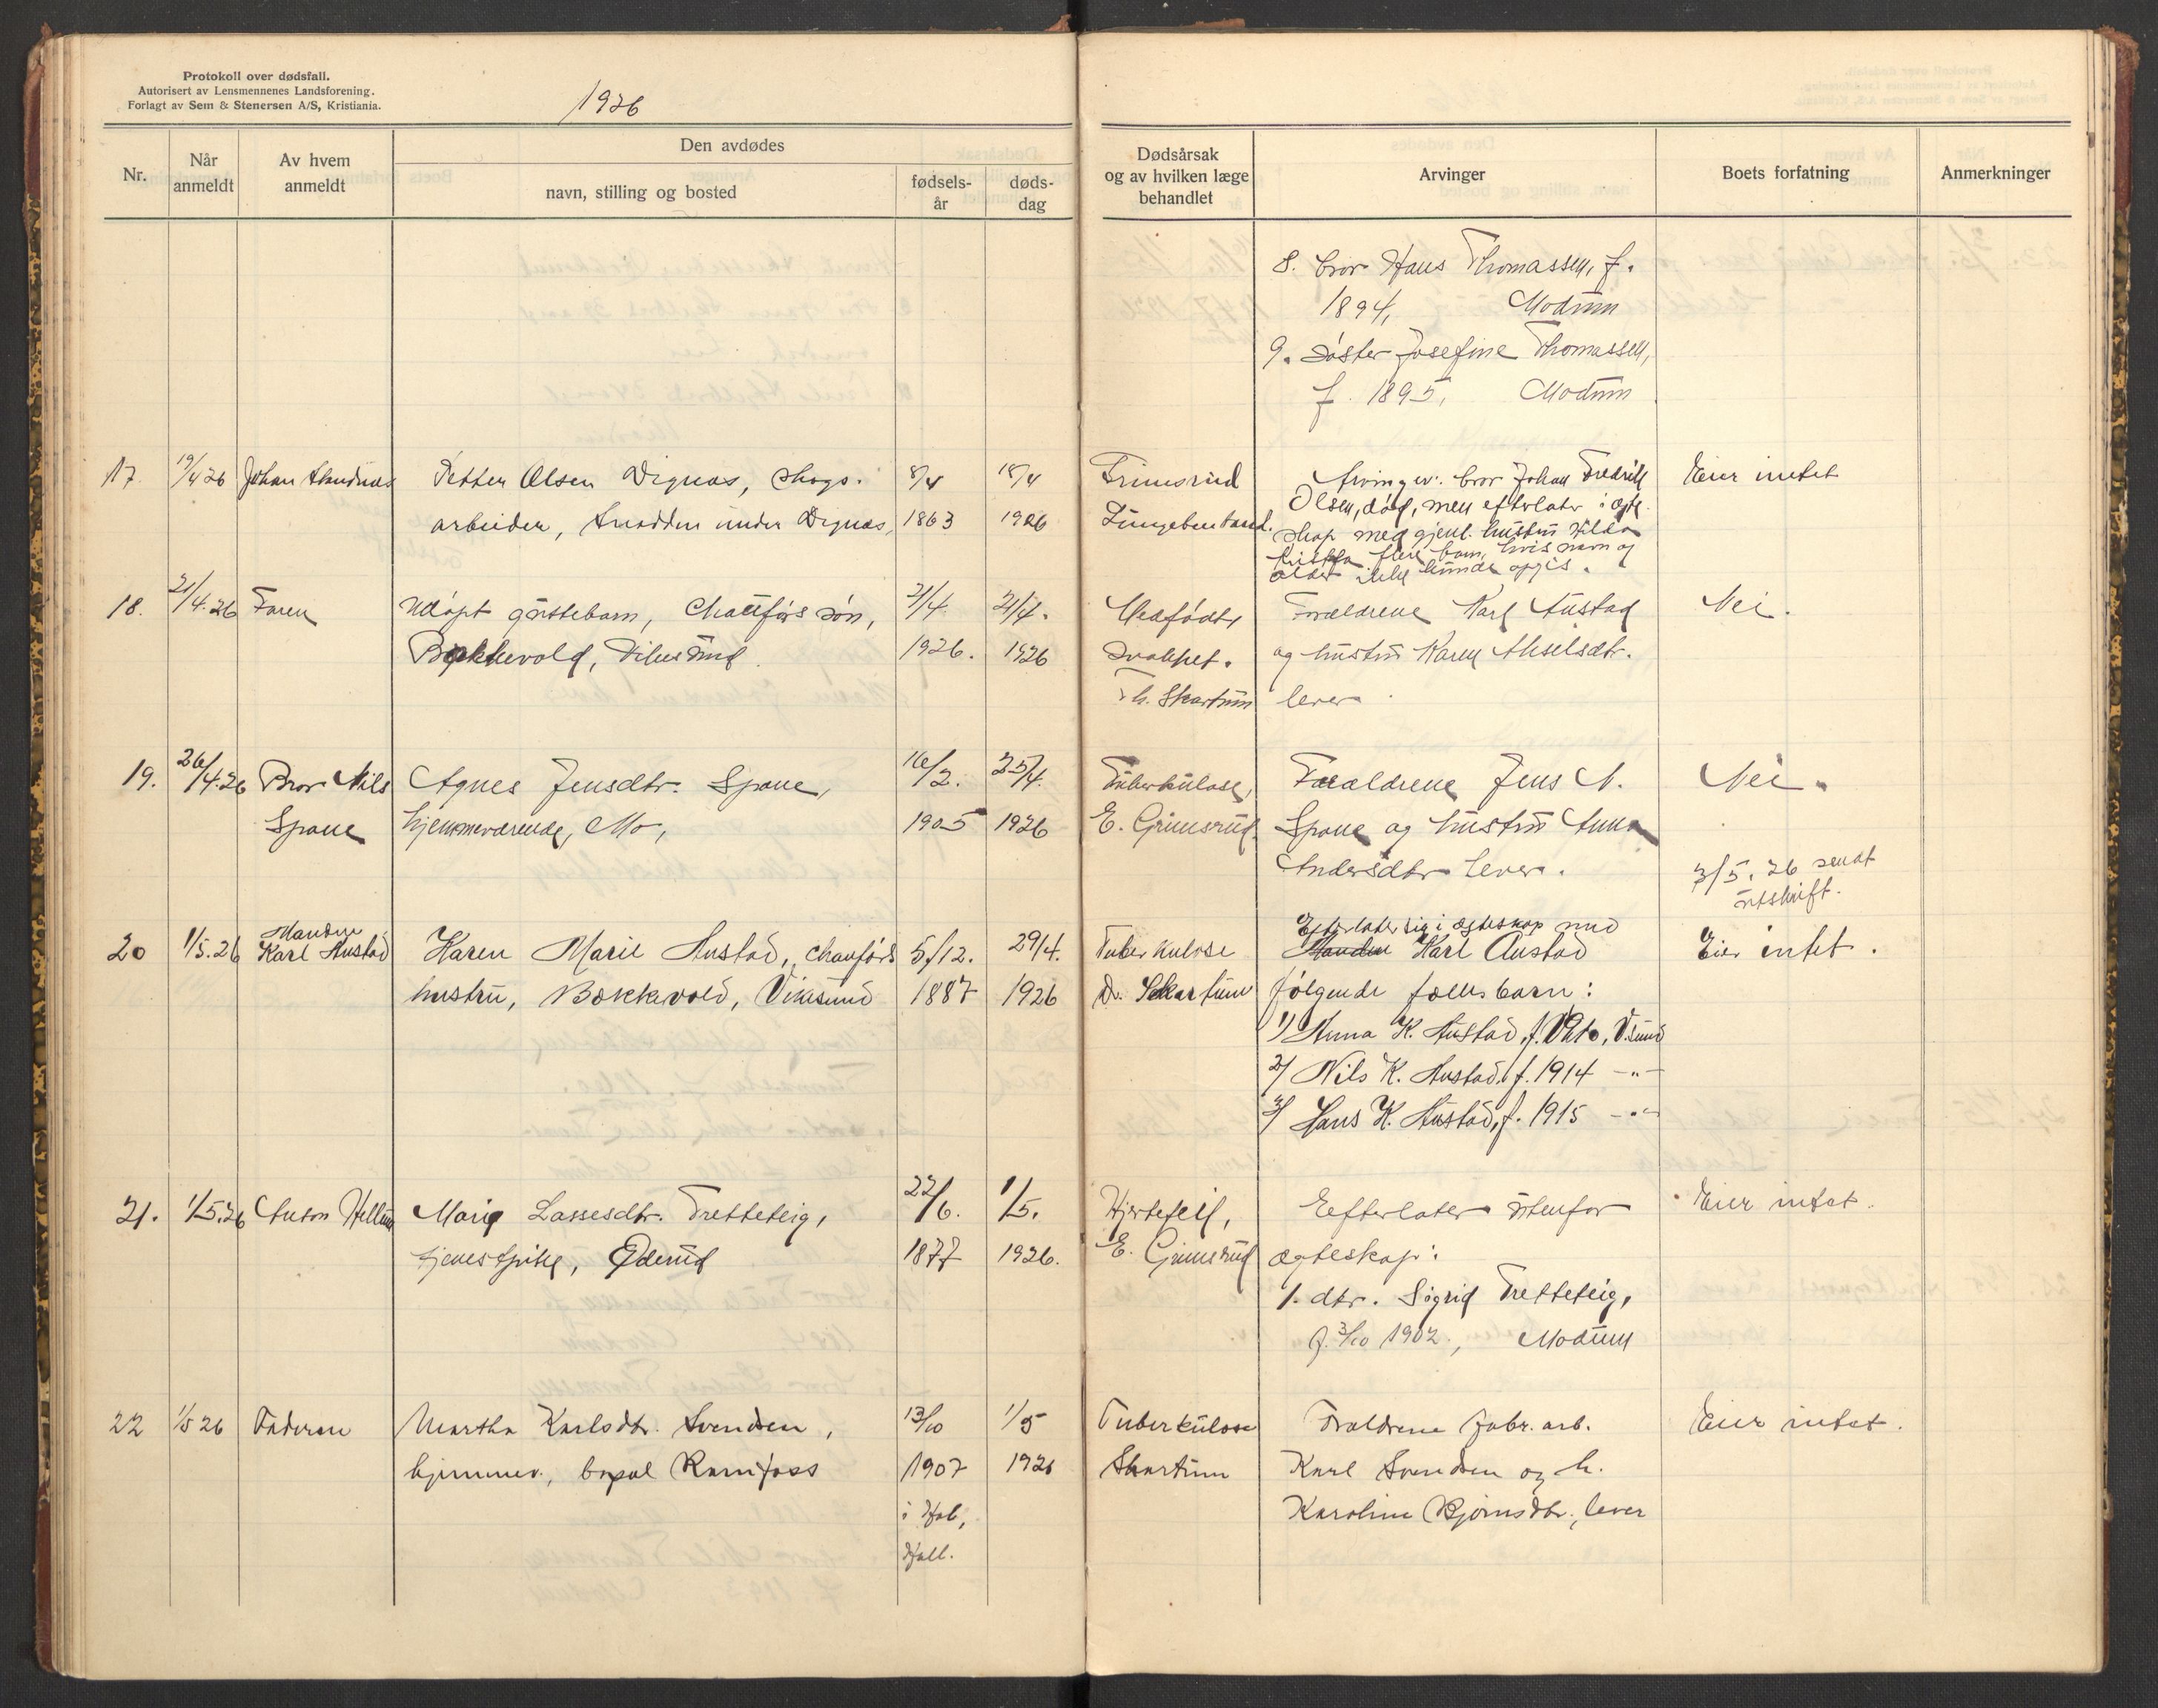 Protokoll over dødsfall.
Autorisert av Lensmennenes Landsforening.
Forlagt av Sem & Stenersen A/S, Kristiania.
1926
Nr.
Når anmeldt
Av hvem anmeldt
Den avdødes
navn, stilling og bosted
fødsels-år
døds-dag
Dødsårsak og av hvilken læge behandlet
Arvinger
Boets forfatning
Anmerkninger
8. bror Hans Thomassen, f.
1894, Modum
9. søster Josefine Thomassen,
f. 1895, Modum
17. 19/4 26 Johan
Petter Olsen Dignas, skogs-
arbeider, under Dignas,
8/4
1863
18/4
1926
Lungebetænd.
Arvinger: bror Johan Fredrik
Olsen, død, men efterlater i egte-
skap med gjenl. hustru Hilda
flere barn, hvis navn og
alder ikke kunde opgis.
Eier intet
18. 21/4.26 Faren
Udøpt guttebarn, chauførs søn,
Bækkevold, Vikersund
21/4
1926.
21/4.
1926
Medfødt
svakhet.
Th. Skartum
Forældrene Karl Austad
og hustru Karen Akselsdtr.
lever
Nei.
19. 26/4.26 Bror Nils
Spone
Agnes Jensdtr. Spone,
hjemmeværende, Mo,
16/2.
1905
25/4.
1926
Tuberkulose,
E. Grimsrud.
Forældrene Jens N.
Spone og hustru Anna
Andersdtr. lever.
Nei.
3/5. 26 sendt
utskrift.
20 1/5.26 Manden
Karl Austad
Karen Marie Austad, chauførs
hustru, Bækkevold, Vikesund
5/12.
1887
29/4.
1926
Tuberkulose
Dr. Skartum
Efterlater sig i egteskap med
Manden Karl Austad
følgende fælles barn:
1) Anna K. Austad, f. 1910, V.sund
2) Nils K. Austad, f. 1914 -"-
3) Hans K. Austad, f. 1915 -"-
Eier intet.
21. 1/5.26 Anton Hellum
Marie Lassesdtr. Tretteteig,
tjenestpike,
22/6.
1877
1/5.
1926.
Hjertefeil,
E. Grimsrud
Eefterlater utenfor
ægteskap:
1. dtr. Sigrid Tretteteig,
f. 3/10 1902, Modum
Eier intet.
22 1/5 26 Faderen
Martha Karlsdtr. Svendsen,
hjemmev., bopæl Ramfoss
13/10
1907
i Hol,
Hall.
1/5
1926
Tuberkulose
Skartum
Forældrene fabr. arb.
Karl Svendsen og h.
Karoline Bjørnsdtr., lever
Eier intet.